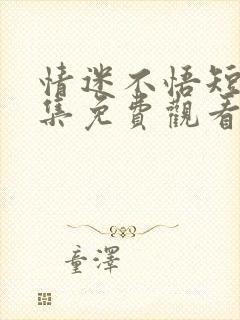 情迷不悟短
集免費觀看
童澤